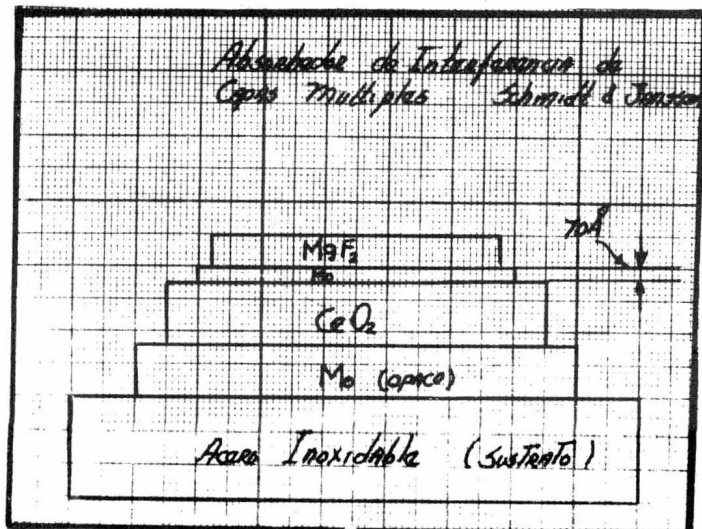 Absorbedor de Interferencia de
Capas Multiples Schmidt & Janssen
70Å
MgF₂
Mo
CeO₂
Mo (OPACO)
Acero Inoxidable (SUSTRATO)